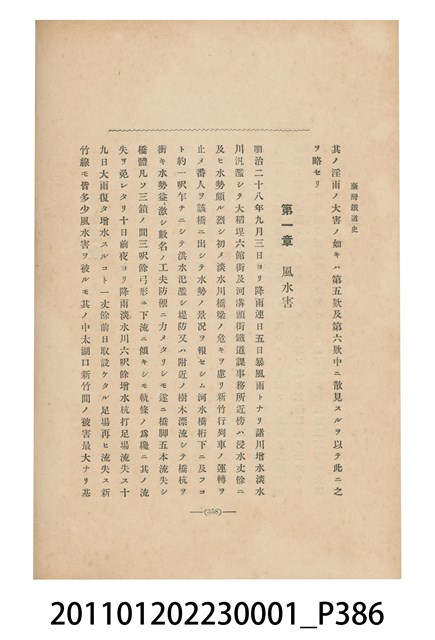 臺灣鐵道史
其ノ淫雨ノ大害ノ如キハ第五欵及第六欵中ニ散見スルヲ以テ此ニ之
ヲ略セリ
第一章 風水害
明治二十八年九月三日ヨリ降雨連日五日暴風雨トナリ諸川增水淡水
川汎濫シテ大稻埕六館街及河溝頭街鐵道課事務所近傍ハ浸水丈餘ニ
及ヒ水勢頗ル烈シ初メ淡水川橋梁ノ危キヲ慮リ新竹行列車ノ運轉ヲ
止メ番人ヲ該橋ニ出シテ水勢ノ景况ヲ報セシム河水橋桁下ニ及フコ
ト約一呎乍チニシテ洪水氾濫シ堤防又ハ附近ノ樹木漂流シテ橋杭ヲ
衝キ水勢益激シ數名ノ工夫防禦ニ力メタリシモ遂ニ橋脚五本流失シ
橋體凡ソ三鎖ノ間三呎餘弓形ニ下流ニ傾キシモ軌條ノ爲機ニ其ノ流
失ヲ免レタリ十日前夜ヨリ降雨淡水川六呎餘增水杭打足場流失ス十
九日大雨復タ增水スルコト一丈餘前日取設ケタル足場再ヒ流失ス新
竹線モ皆多少風水害ヲ被ルモ其ノ中太湖口新竹間ノ被害最大ナリ基
(358)
201101202230001_P386